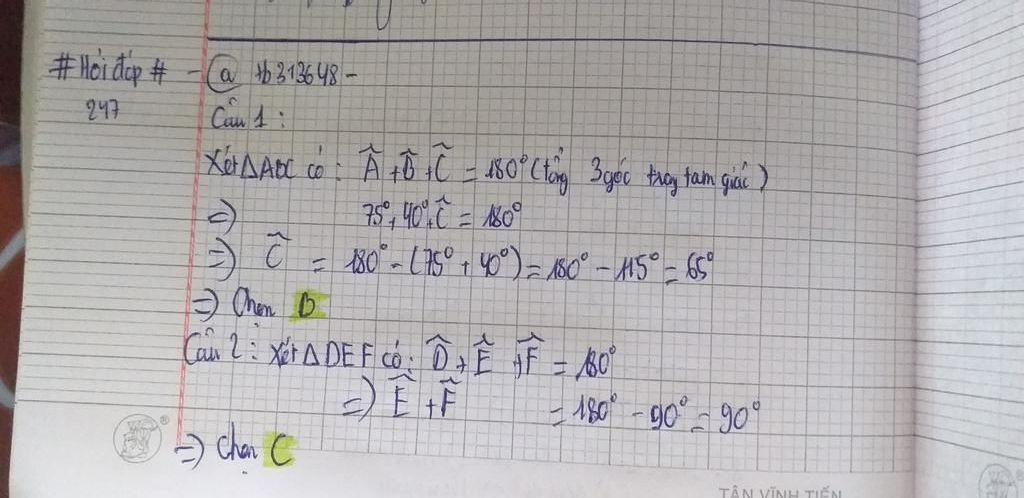 #Hỏi đáp # - @ tb313648 -
247
Câu 1 :
Xét ΔABC có : Â + B̂ + Ĉ = 180° (tổng 3 góc trong tam giác)
=> 75° + 40° + Ĉ = 180°
=> Ĉ = 180° - (75° + 40°) = 180° - 115° = 65°
=> Chọn D
Câu 2 : Xét ΔDEF có : D̂ + Ê + F̂ = 180°
=> Ê + F̂ = 180° - 90° = 90°
=> Chọn C
TÂN VĨNH TIẾN